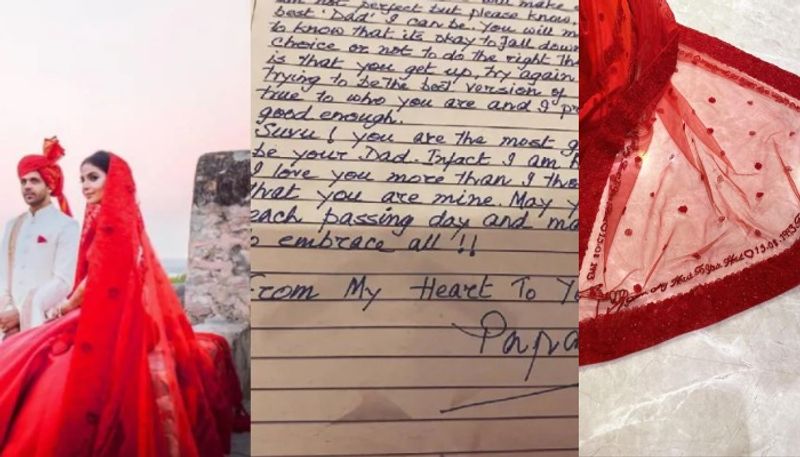 will make
am not perfect but please know,
best 'Dad' I can be. You will m
to know that its okay to fall down
choice or not to do the right Th
is that you get up, try again
trying to be the best version of
true to who you are and I p
good enough.
Suvu! you are the most g
be your Dad. Infact I am
I love you more than I tho
that you are mine. May y
each passing day and ma
embrace all !!
From My Heart To Yo
Papa
From my Heart To Your Heart